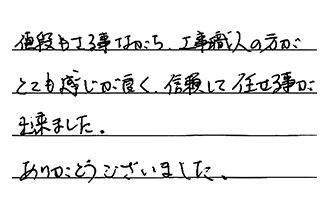 値段もさる事ながら、工事職人の方が
とても感じが良く、信頼して任せる事が
出来ました。
ありがとうございました。